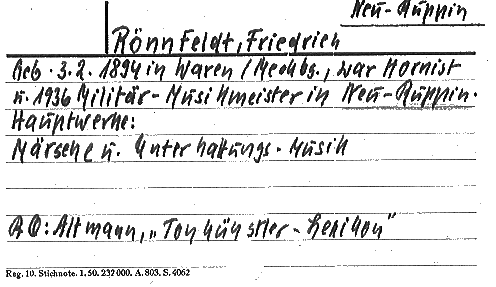 Neu-Ruppin
Rönnfeldt, Friedrich
Geb. 3.2.1894 in Waren/Mecklbg., war Hornist
u. 1936 Militär-Musikmeister in Neu-Ruppin.
Hauptwerke:
Märsche u. Unterhaltungs-Musik
AQ: Altmann, „Tonkünstler-Lexikon"
Rag. 10. Stichnote. 1. 50. 232000. A. 803. S. 4062